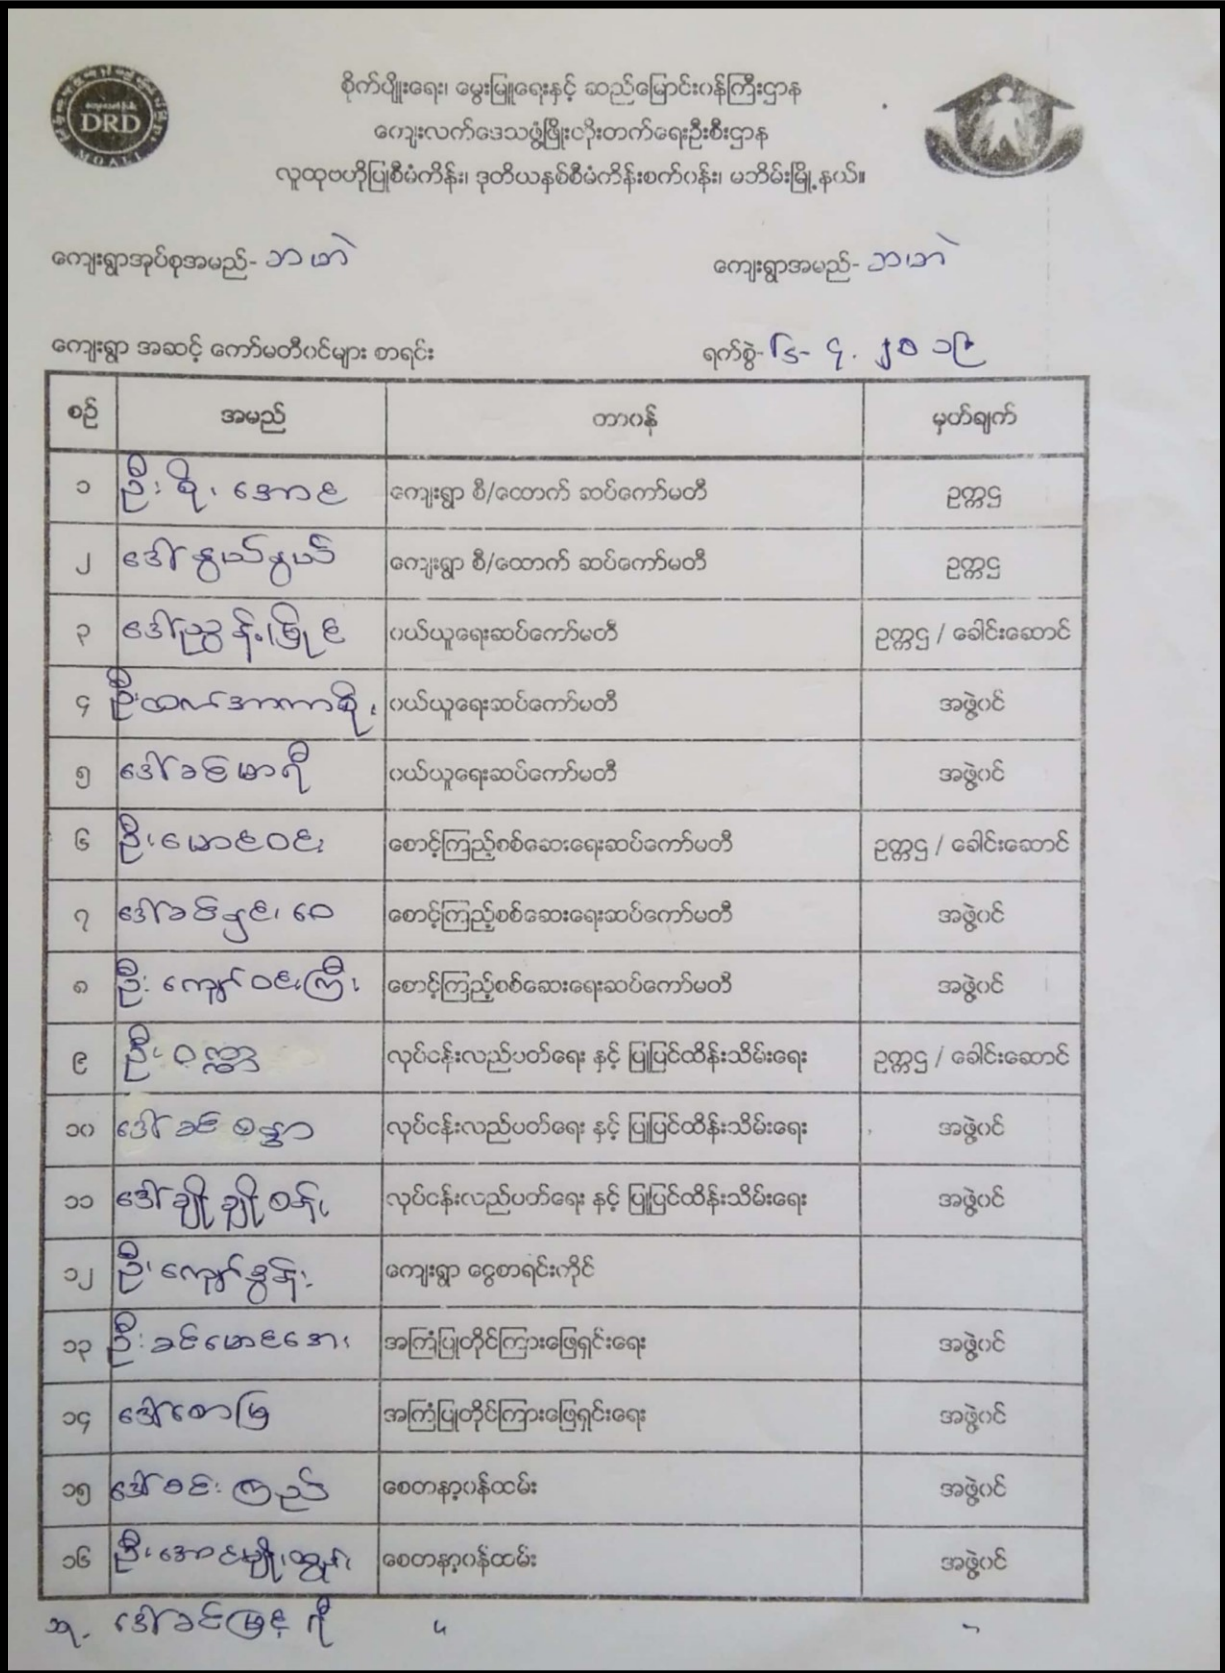 DRD
MOALI
စိုက်ပျိုးရေး၊ မွေးမြူရေးနှင့် ဆည်မြောင်းဝန်ကြီးဌာန
ကျေးလက်ဒေသဖွံ့ဖြိုးတိုးတက်ရေးဦးစီးဌာန
လူထုဗဟိုပြုစီမံကိန်း၊ ဒုတိယနှစ်စီမံကိန်းစက်ဝန်း၊ မဘိမ်းမြို့နယ်။
ကျေးရွာအုပ်စုအမည်- ဘဟဲ ကျေးရွာအမည်- ဘဟဲ
ကျေးရွာ အဆင့် ကော်မတီဝင်များ စာရင်း ရက်စွဲ- ၂၀၁၉
စဉ် အမည် တာဝန် မှတ်ချက်
၁ ဦးစိုးအောင် ကျေးရွာ စီ/ထောက် ဆပ်ကော်မတီ ဥက္ကဌ
၂ ဒေါ်နွယ်နွယ် ကျေးရွာ စီ/ထောက် ဆပ်ကော်မတီ ဥက္ကဌ
၃ ဒေါ်ညွန့် ဝယ်ယူရေးဆပ်ကော်မတီ ဥက္ကဌ / ခေါင်းဆောင်
၄ ဦးထက်အာကာစိုး ဝယ်ယူရေးဆပ်ကော်မတီ အဖွဲ့ဝင်
၅ ဒေါ်ခင်မာရီ ဝယ်ယူရေးဆပ်ကော်မတီ အဖွဲ့ဝင်
၆ ဦးမောင်ဝင်း စောင့်ကြည့်စစ်ဆေးရေးဆပ်ကော်မတီ ဥက္ကဌ / ခေါင်းဆောင်
၇ ဒေါ်ခင်နှင်းဝေ စောင့်ကြည့်စစ်ဆေးရေးဆပ်ကော်မတီ အဖွဲ့ဝင်
၈ ဦးကျော်ဝင်းကြီး စောင့်ကြည့်စစ်ဆေးရေးဆပ်ကော်မတီ အဖွဲ့ဝင်
၉ ဦးဝဏ္ဏ လုပ်ငန်းလည်ပတ်ရေး နှင့် ပြုပြင်ထိန်းသိမ်းရေး ဥက္ကဌ / ခေါင်းဆောင်
၁၀ ဒေါ်ခင်စန္ဒာ လုပ်ငန်းလည်ပတ်ရေး နှင့် ပြုပြင်ထိန်းသိမ်းရေး အဖွဲ့ဝင်
၁၁ ဒေါ်ချိုချိုစန်း လုပ်ငန်းလည်ပတ်ရေး နှင့် ပြုပြင်ထိန်းသိမ်းရေး အဖွဲ့ဝင်
၁၂ ဦးကျော်ခွန်း ကျေးရွာ ငွေစာရင်းကိုင်
၁၃ ဦးခင်မောင်အေး အကြံပြုတိုင်ကြားဖြေရှင်းရေး အဖွဲ့ဝင်
၁၄ ဒေါ်စောမြ အကြံပြုတိုင်ကြားဖြေရှင်းရေး အဖွဲ့ဝင်
၁၅ ဒေါ်စင်းကြည် စေတနာ့ဝန်ထမ်း အဖွဲ့ဝင်
၁၆ ဦးအောင်မျိုးထွန်း စေတနာ့ဝန်ထမ်း အဖွဲ့ဝင်
၁၇. ဒေါ်ခင်မြင့်ရီ 〃 〃